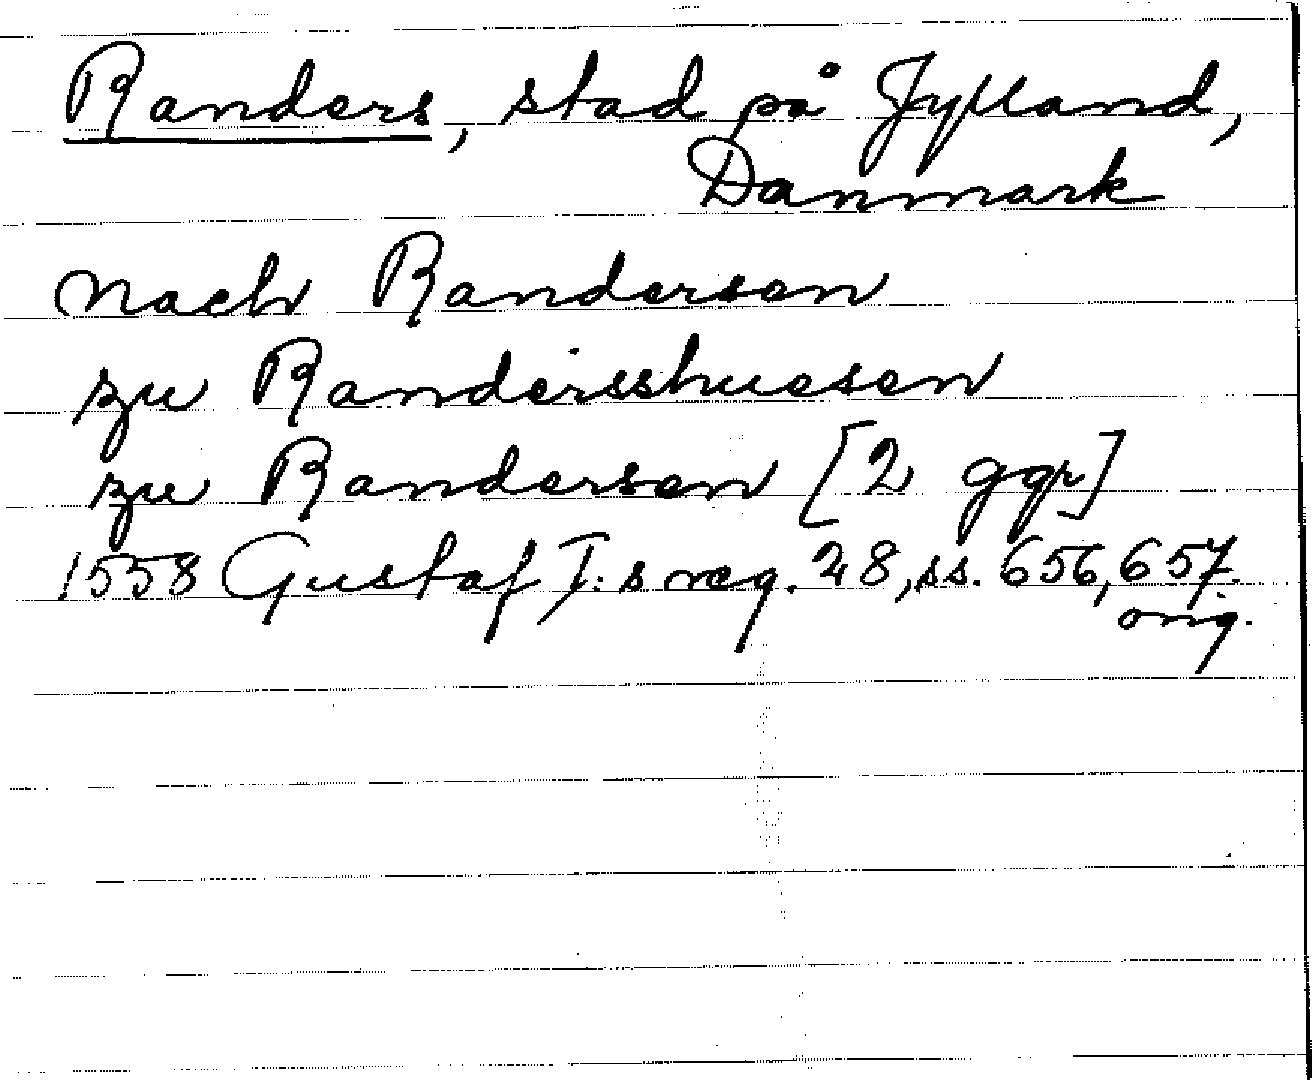 Randers, stad på Jylland,
Danmark
nach Randersen
zu Randersshuesen
zu Randersen [2 ggr]
1558 Gustaf I:s reg. 28, ss. 656, 657.
orig.